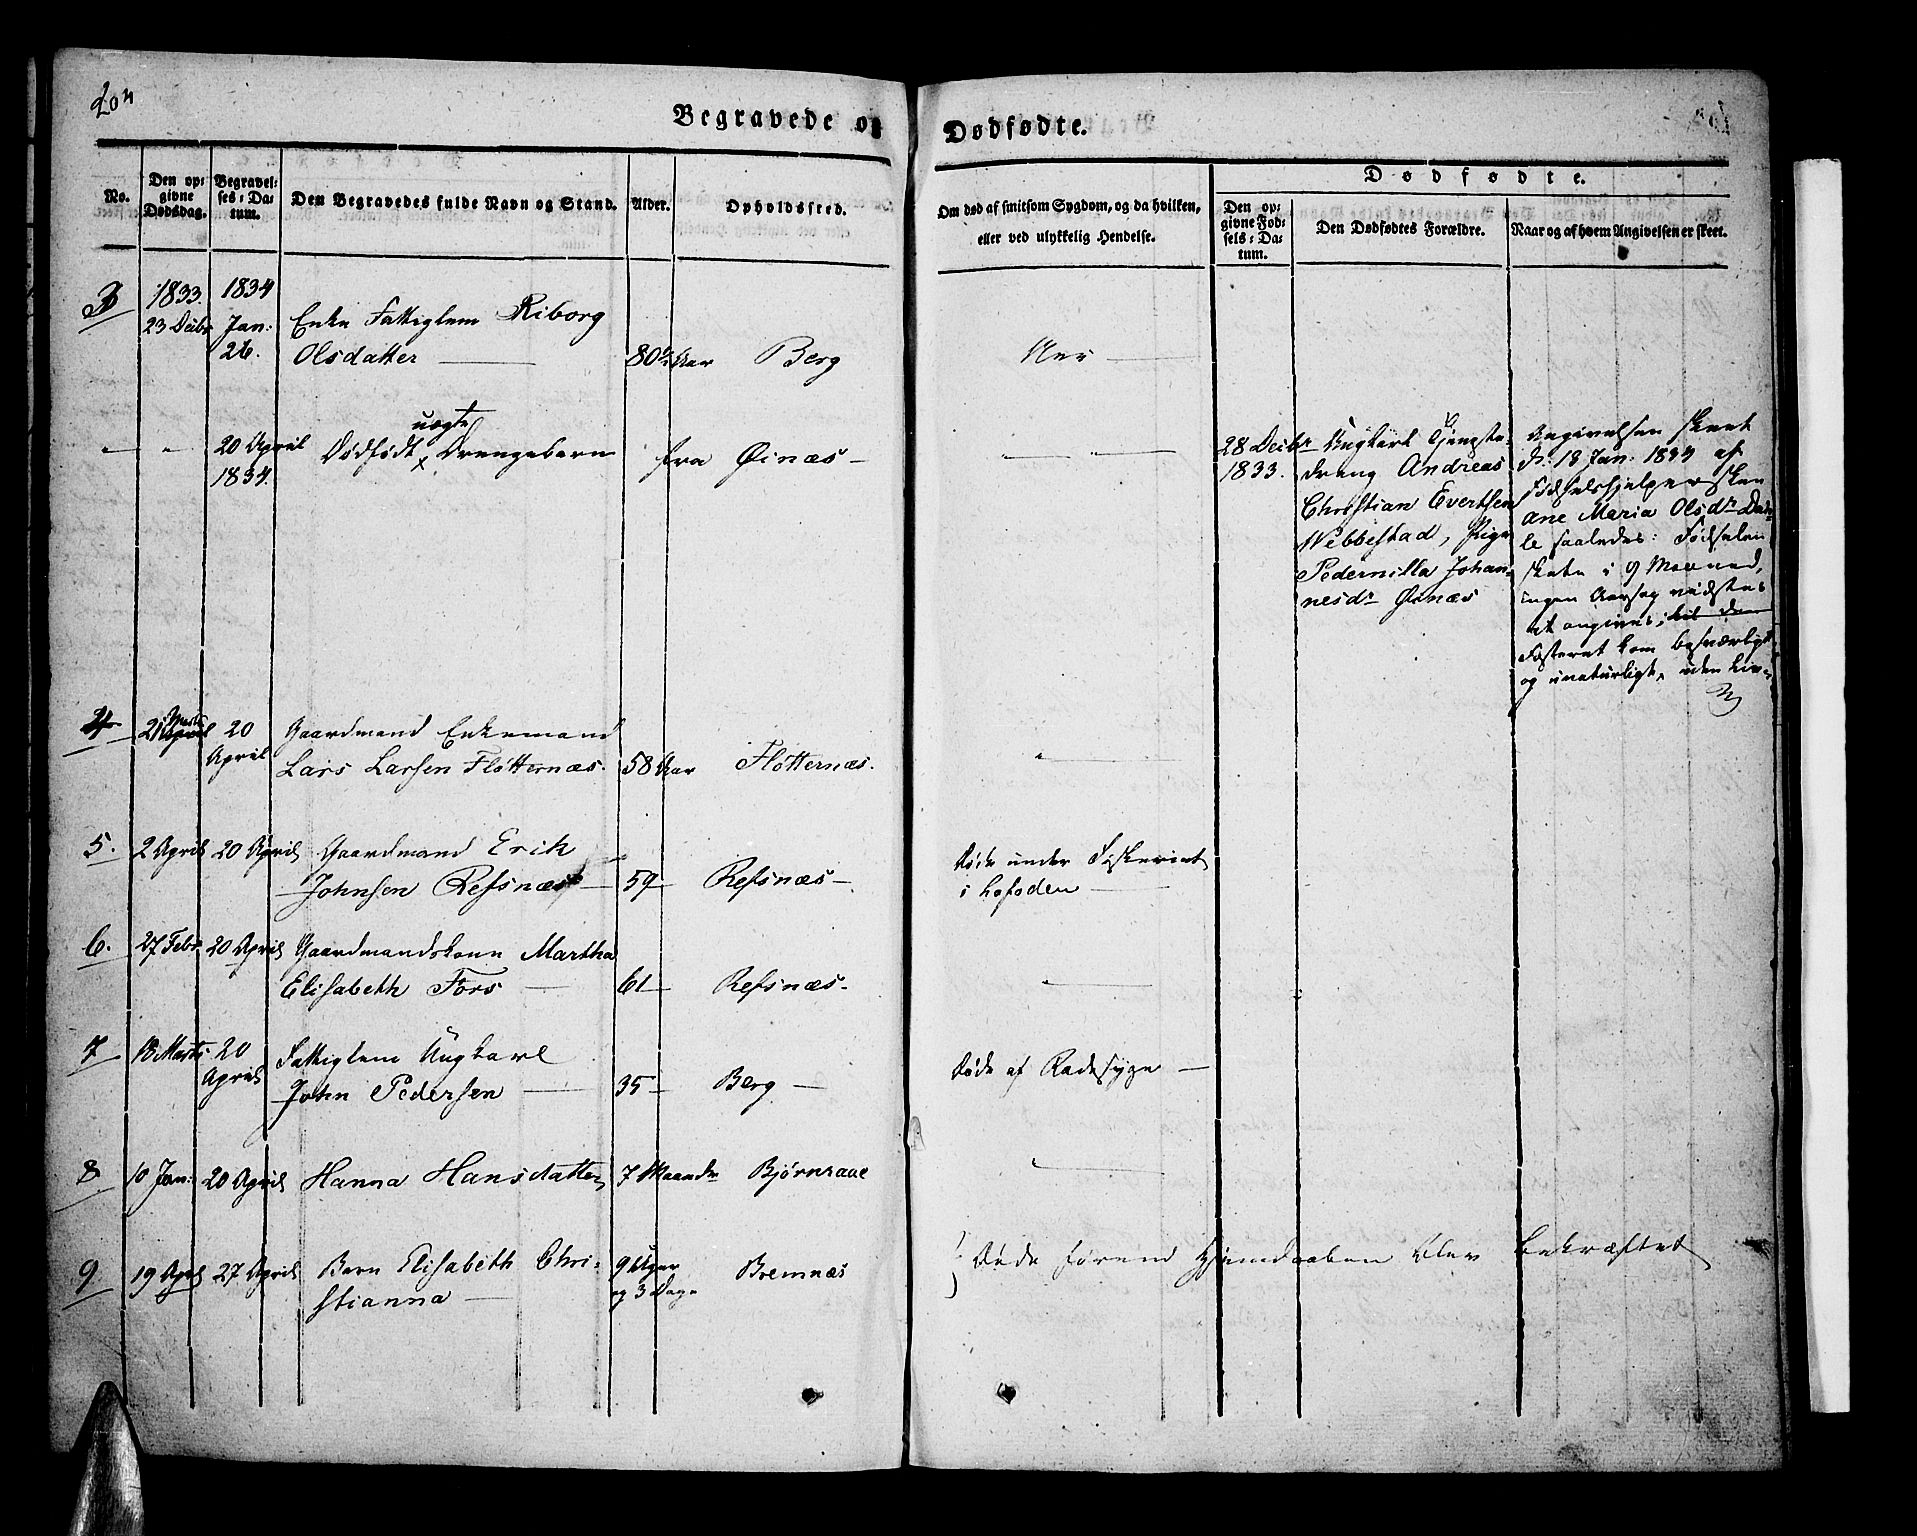 204
Begravede og
Dødfødte.
No.
Den op-
givne
Dødsdag.
Begravel-
ses-Da-
tum.
Den Begravedes fulde Navn og Stand.
Alder.
Opholdssted.
Om død af smitsom Sygdom, og da hvilken,
eller ved ulykkelig Hendelse.
Dødfødte.
Den op-
givne Fød-
sels-Da-
tum.
Den Dødfødtes Forældre.
Naar og af hvem Angivelsen er skeet.
3
1833.
23 Decbr
1834
Jan:
26.
Enke Fattiglem Riborg
Olsdatter
80½ Aar
Berg
20 April
1834.
uægte
Dødfødt x Drengebarn
fra Øinæs
28 Decbr
1833.
Ungkarl Tjeneste-
dreng Andreas
Christian Evertsen
Webbestad, Pige
Pedernilla Johan-
nesdr Øinæs
Angivelsen skeet
d. 18 Jan. 1834 af
Fødselshjelpersken
Ane Maria Olsdr
saaledes: Fødselen
skete i 9 Maaned,
ingen Aarsag vidstes
at angives;
Fosteret kom besværligt
og unaturligt, uden Liv
4
21 Marts
20
April
Gaardmand Enkemand
Lars Larsen Fløtternæs.
58 Aar
Fløtternæs.
5.
2 April
20 April
Gaardmand Erik
Johnsen Refsnæs
59
Refsnæs
Døde under Fiskeriet
i Lofoden
6.
27 Febr
20 April
Gaardmandskone Martha
Elisabeth Fors
61
Refsnæs
7
18 Marts
20
April
Fattiglem Ungkarl
John Pedersen
35
Berg
Døde af Radesyge
8
10 Jan:
20 April
Hanna Hansdatter
7 Maaneder
Bjørnraae
9.
19 April
27 April
Barn Elisabeth Chri-
stianna
9 Uger
og 3 Dage
Bremnæs
Døde førend Hjemdaaben blev bekræftet